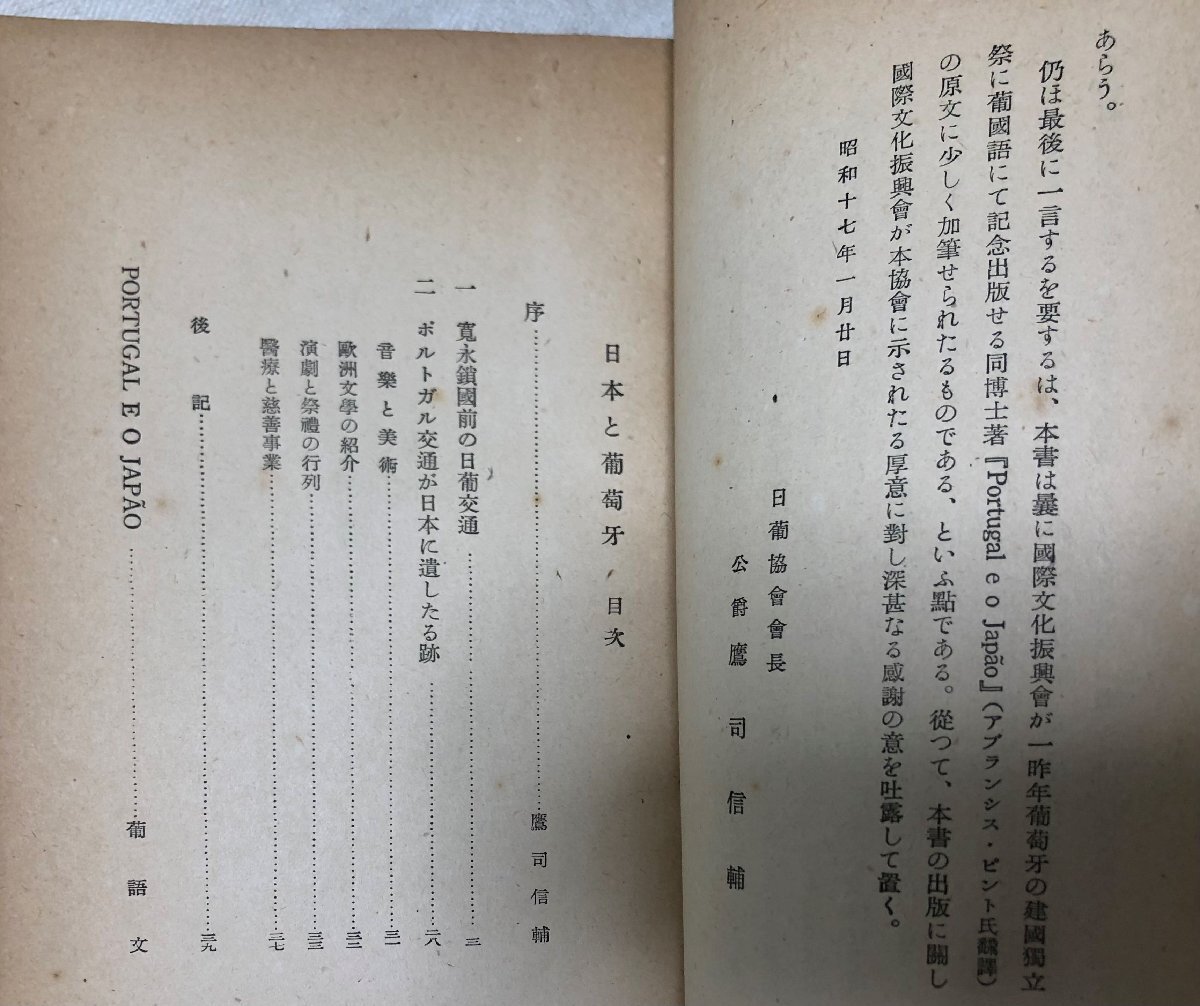 あらう。
仍ほ最後に一言するを要するは、本書は曩に國際文化振興會が一昨年葡萄牙の建國獨立
祭に葡國語にて記念出版せる同博士著『Portugal e o Japão』（アブランシス・ピント氏飜譯）
の原文に少しく加筆せられたるものである、といふ點である。從つて、本書の出版に關し
國際文化振興會が本協會に示されたる厚意に對し深甚なる感謝の意を吐露して置く。
昭和十七年一月廿日
日葡協會會長
公爵 鷹司信輔
日本と葡萄牙・目次
序……………鷹司信輔
一 寛永鎖國前の日葡交通……………三
二 ポルトガル交通が日本に遺したる跡……………二八
音樂と美術……………三一
歐洲文學の紹介……………三二
演劇と祭禮の行列……………三三
醫療と慈善事業……………三七
後記……………三九
PORTUGAL E O JAPÃO……………葡語文